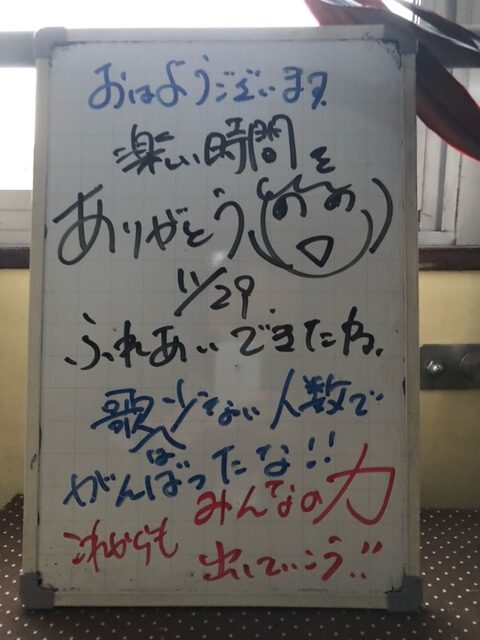 おはようございます
楽しい時間を
ありがとう
11/29
ふれあいできたね。
歌は少ない人数で
がんばったな!!
これからもみんなの力
出していこう!!